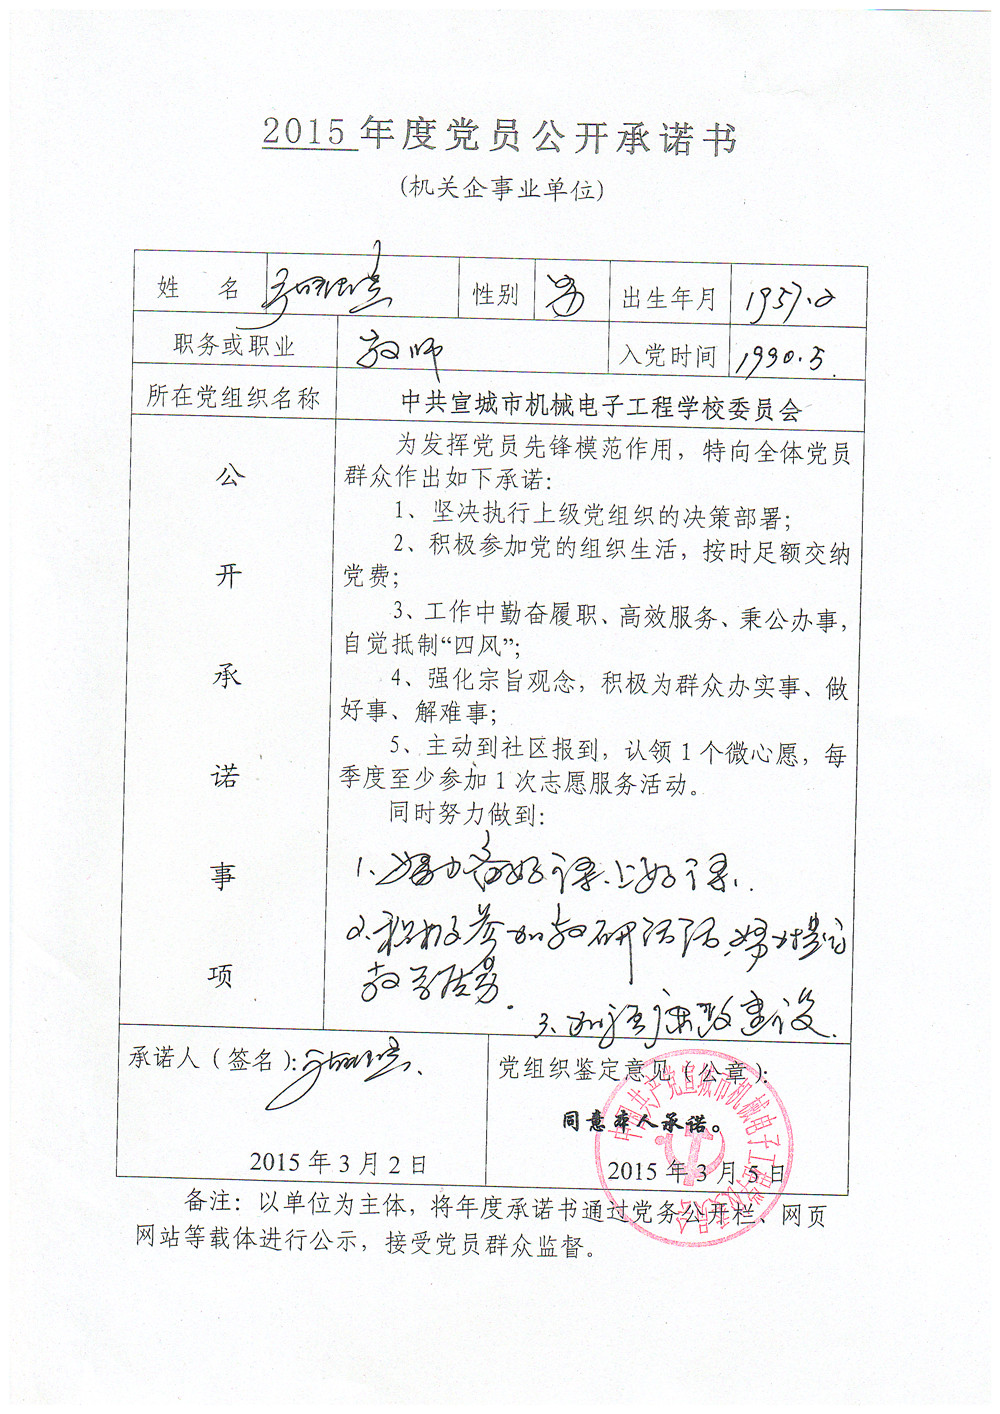 2015 年度党员公开承诺书
(机关企事业单位)
姓 名 性别 男 出生年月 1957.2
职务或职业 教师 入党时间 1990.5.
所在党组织名称 中共宣城市机械电子工程学校委员会
公开承诺事项
为发挥党员先锋模范作用，特向全体党员
群众作出如下承诺:
1、坚决执行上级党组织的决策部署;
2、积极参加党的组织生活，按时足额交纳
党费;
3、工作中勤奋履职、高效服务、秉公办事，
自觉抵制“四风”;
4、强化宗旨观念，积极为群众办实事、做
好事、解难事;
5、主动到社区报到，认领 1 个微心愿，每
季度至少参加 1 次志愿服务活动。
同时努力做到:
1、努力备好课、上好课.
2、积极参加教研活动,努力提高
教学质量.
3、加强廉政建设.
承诺人（签名）:
2015 年 3 月 2 日
党组织鉴定意见（公章）:
同意本人承诺。
2015 年 3 月 5 日
中国共产党宣城市机械电子工程学校委员会
备注: 以单位为主体，将年度承诺书通过党务公开栏、网页
网站等载体进行公示，接受党员群众监督。